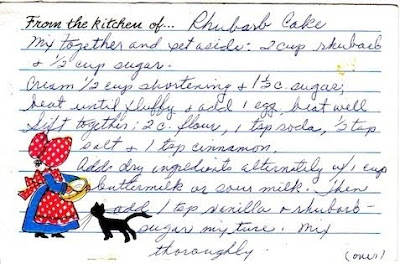 From the kitchen of... Rhubarb Cake
Mix together and set aside: 2 cup rhubarb
& 1/2 cup sugar.
Cream 1/2 cup shortening & 1 1/2 c. sugar;
beat until fluffy & add 1 egg, beat well
Sift together: 2 c. flour, 1 tsp soda, 1/2 tsp
salt & 1 tsp cinnamon.
Add dry ingredients alternately w/ 1 cup
buttermilk or sour milk. Then
add 1 tsp vanilla & rhubarb-
sugar mixture. Mix
thoroughly.
(over)